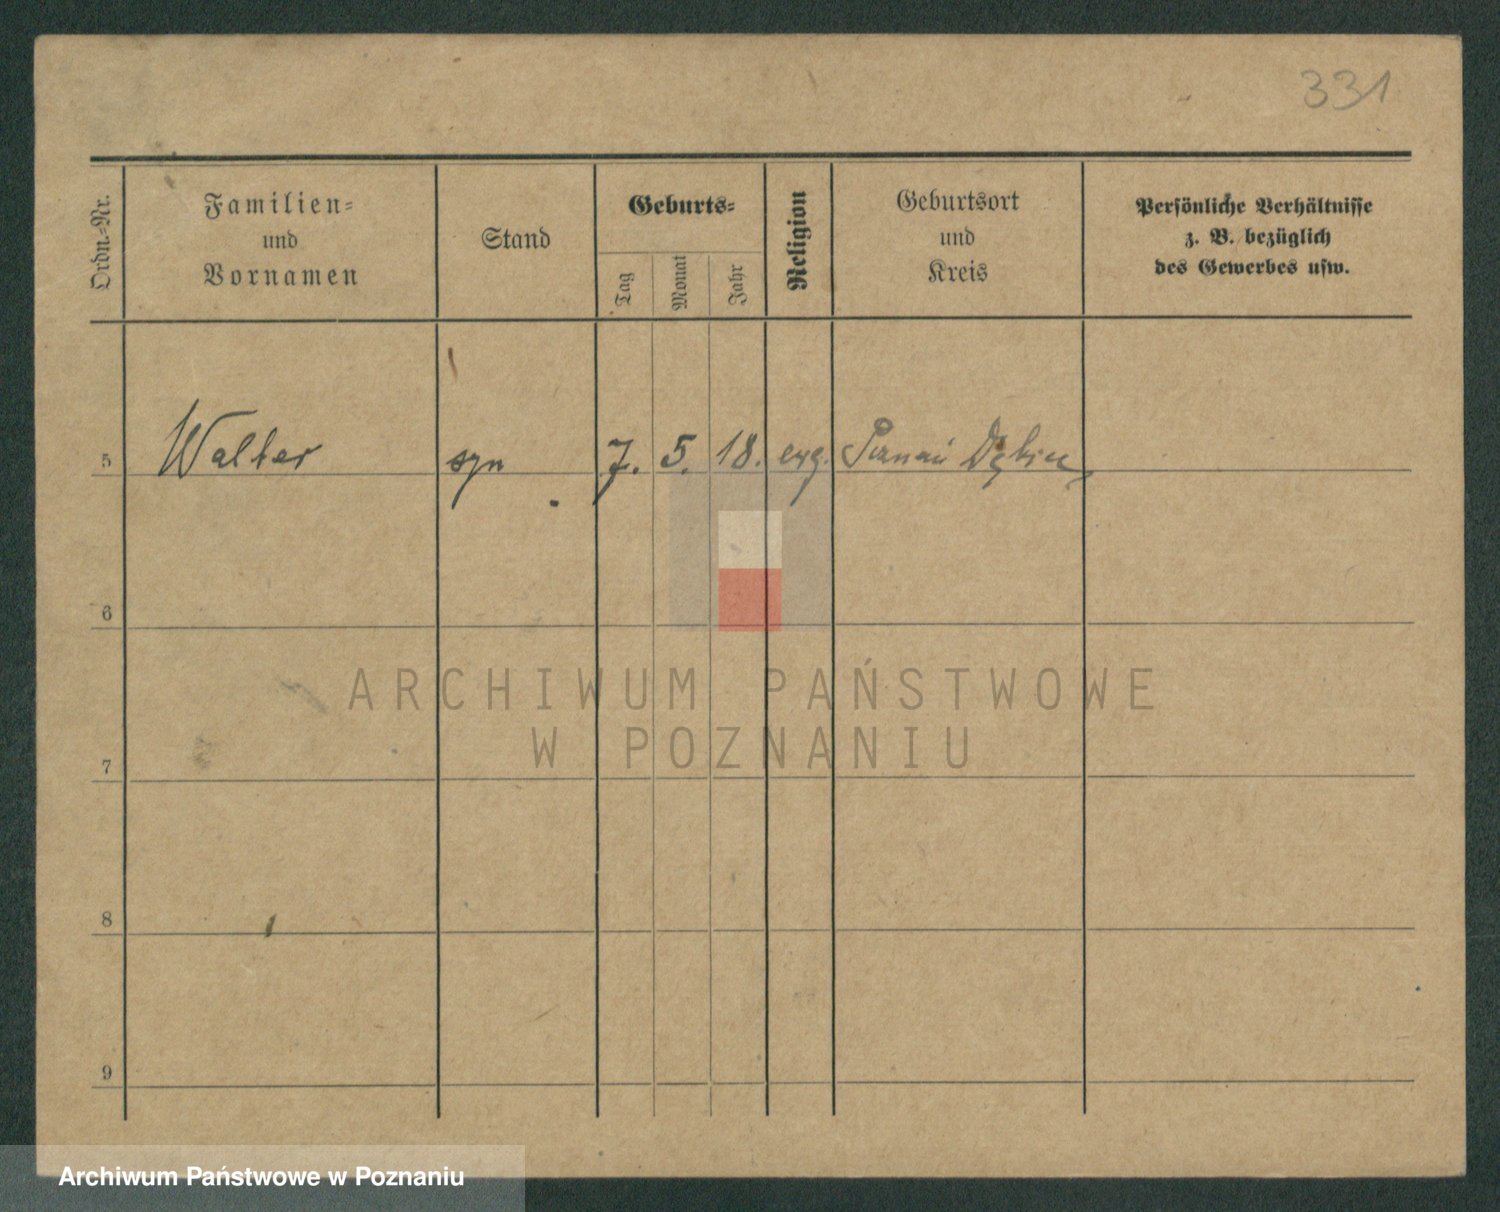 331
Ordn.-Nr.
Familien-
und
Vornamen
Stand
Geburts-
Tag
Monat
Jahr
Religion
Geburtsort
und
Kreis
Persönliche Verhältnisse
z. B. bezüglich
des Gewerbes usw.
5 Walter syn 7. 5. 18. ewg. Poznań
6
ARCHIWUM PAŃSTWOWE
W POZNANIU
7
8
9
Archiwum Państwowe w Poznaniu